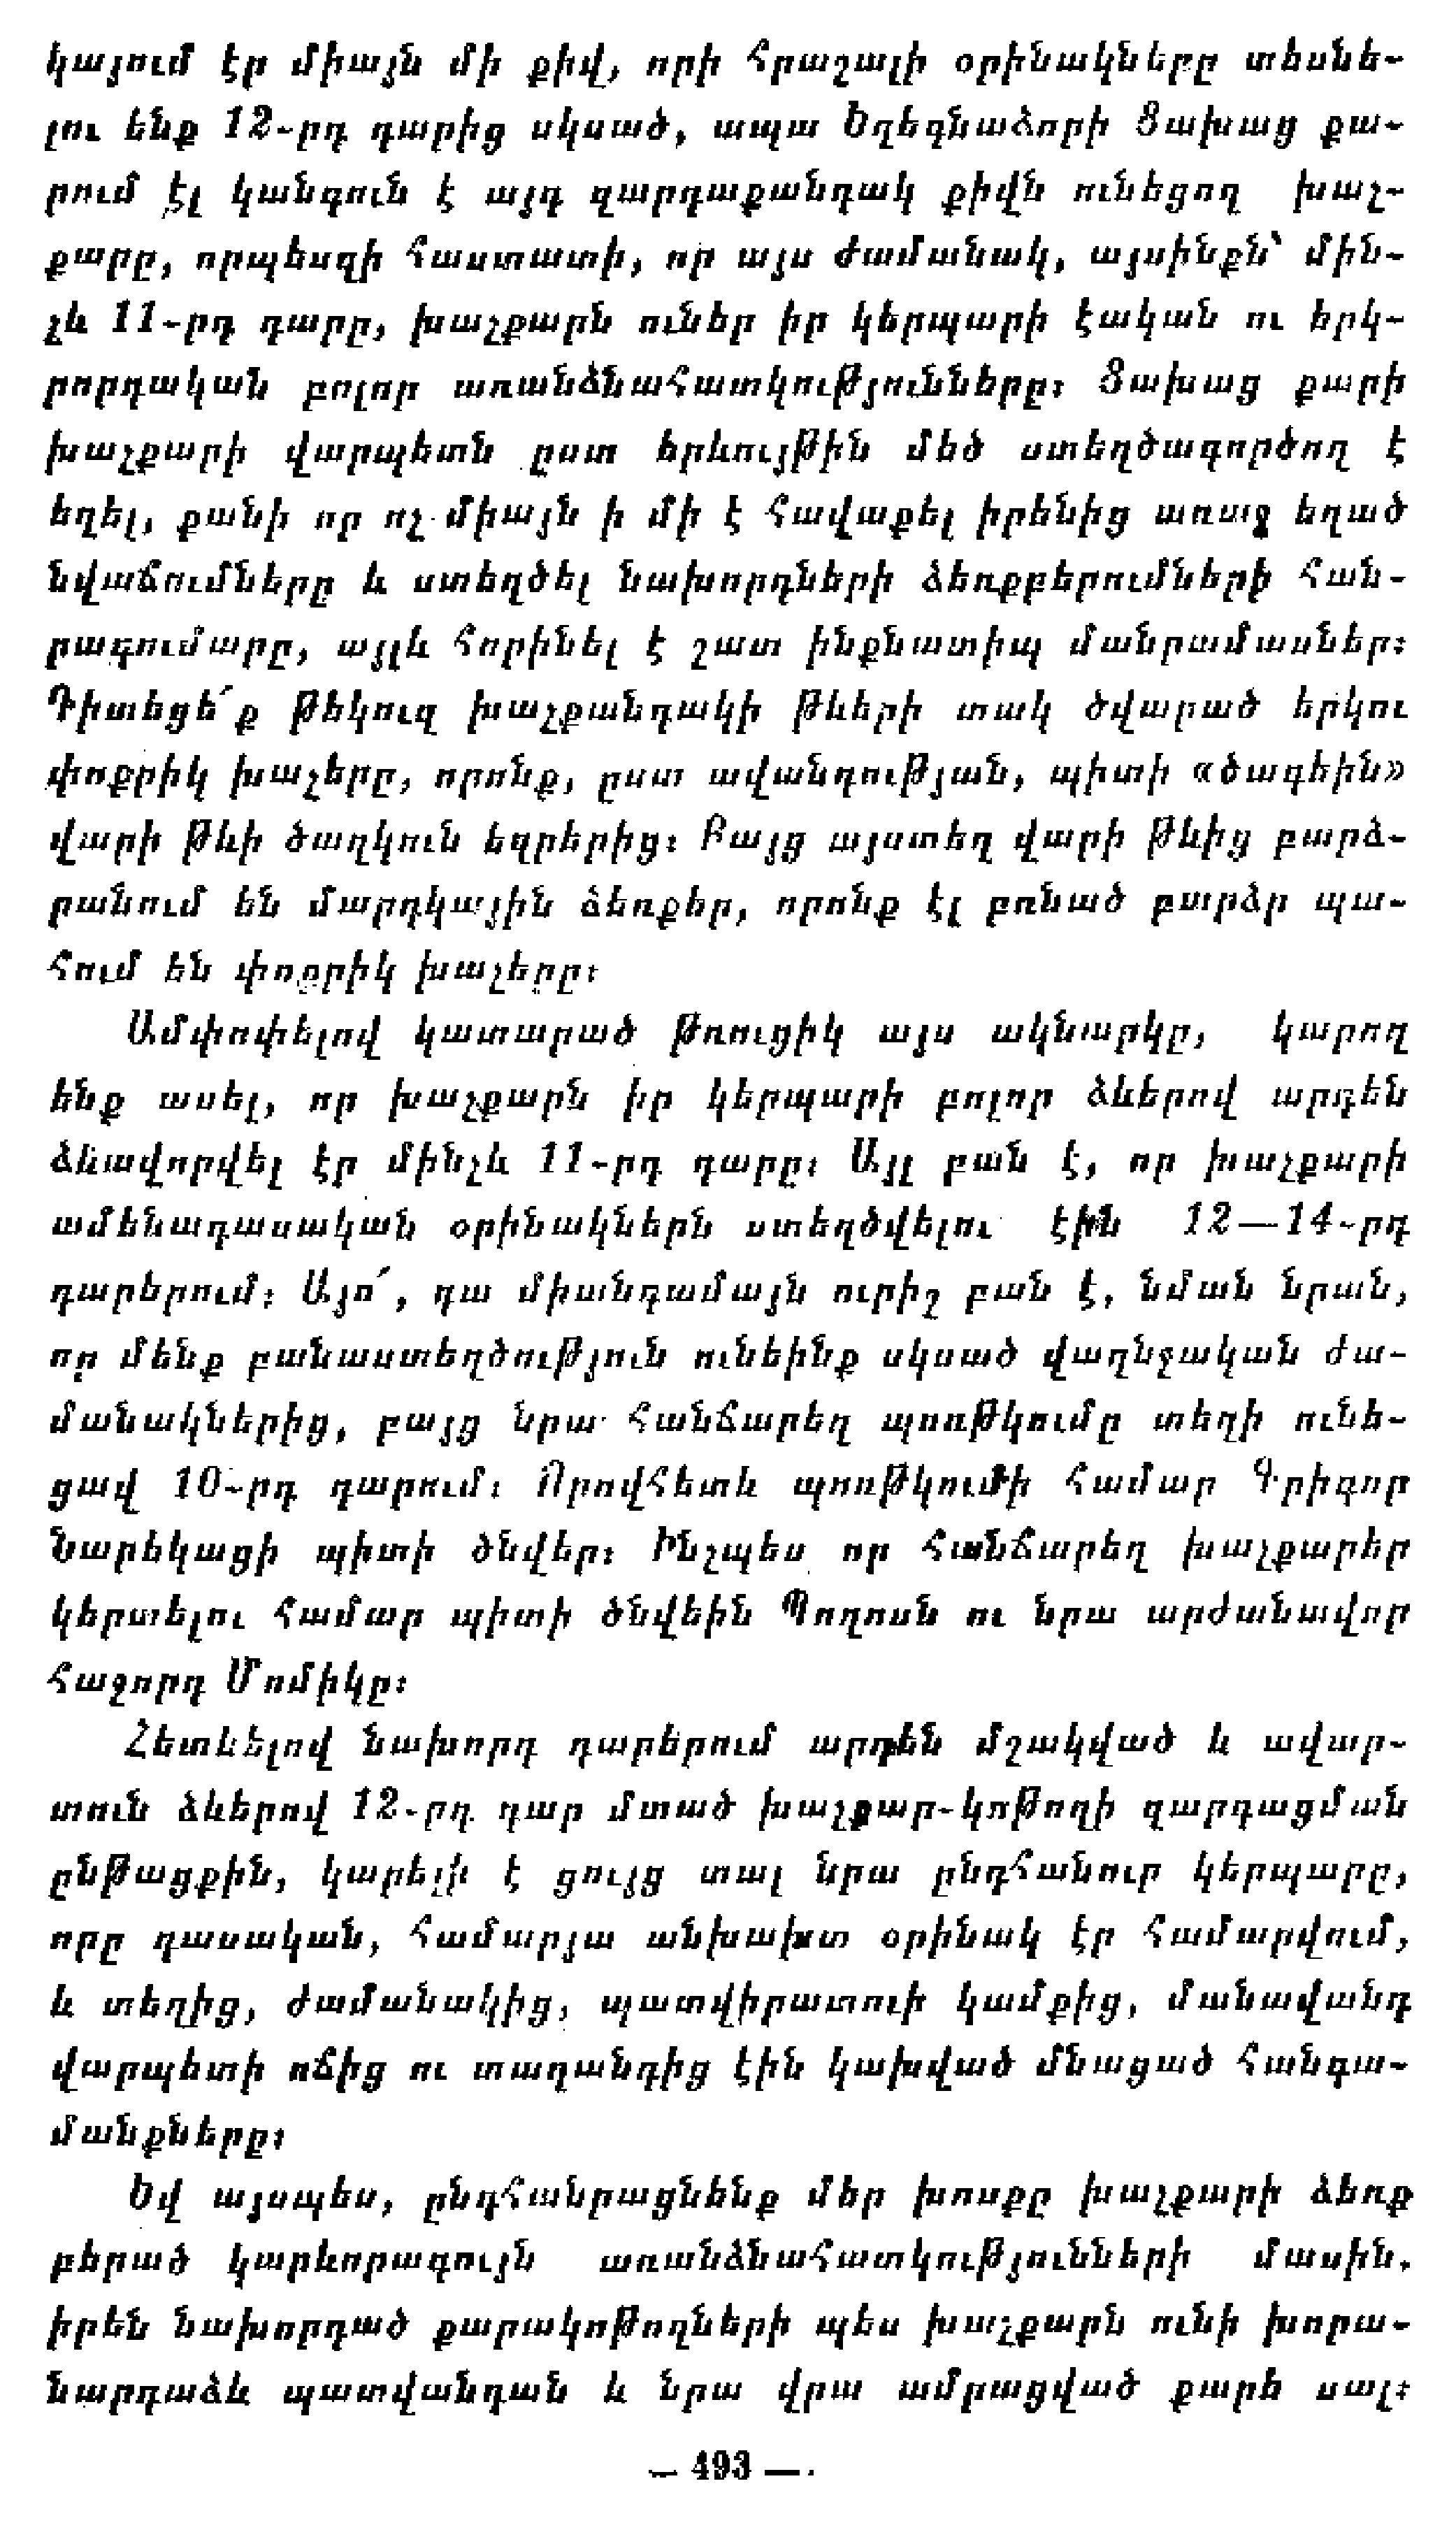 կայում էր միայն մի քիվ, որի հրաշալի օրինակները տեսնե-
լու ենք 12-րդ դարից սկսած, ապա Եղեգնաձորի Ցախաց քա-
րում էլ կանգուն է այդ զարդաքանդակ քիվն ունեցող խաչ-
քարը, որպեսզի հաստատի, որ այս ժամանակ, այսինքն՝ մին-
չև 11-րդ դարը, խաչքարն ուներ իր կերպարի էական ու երկ-
րորդական բոլոր առանձնահատկությունները։ Ցախաց քարի
խաչքարի վարպետն ըստ երևույթին մեծ ստեղծագործող է
եղել, քանի որ ոչ միայն ի մի է հավաքել իրենից առաջ եղած
նվաճումները և ստեղծել նախորդների ձեռքբերումների հան-
րագումարը, այլև հորինել է շատ ինքնատիպ մանրամասներ։
Դիտեցե՛ք թեկուզ խաչքանդակի թևերի տակ ծվարած երկու
փոքրիկ խաչերը, որոնք, ըստ ավանդության, պիտի «ծագեին»
վարի թևի ծաղկուն եզրերից։ Բայց այստեղ վարի թևից բարձ-
րանում են մարդկային ձեռքեր, որոնք էլ բռնած բարձր պա-
հում են փոքրիկ խաչերը։
Ամփոփելով կատարած թռուցիկ այս ակնարկը, կարող
ենք ասել, որ խաչքարն իր կերպարի բոլոր ձևերով արդեն
ձևավորվել էր մինչև 11-րդ դարը։ Այլ բան է, որ խաչքարի
ամենադասական օրինակներն ստեղծվելու էին 12—14-րդ
դարերում։ Այո՛, դա միանգամայն ուրիշ բան է, նման նրան,
որ մենք բանաստեղծություն ունեինք սկսած վաղնջական ժա-
մանակներից, բայց նրա հանճարեղ պոռթկումը տեղի ունե-
ցավ 10-րդ դարում։ Որովհետև պոռթկումի համար Գրիգոր
Նարեկացի պիտի ծնվեր։ Ինչպես որ հանճարեղ խաչքարեր
կերտելու համար պիտի ծնվեին Պողոսն ու նրա արժանավոր
հաջորդ Մոմիկը։
Հետևելով նախորդ դարերում արդեն մշակված և ավար-
տուն ձևերով 12-րդ դար մտած խաչքար-կոթողի զարդացման
ընթացքին, կարելի է ցույց տալ նրա ընդհանուր կերպարը,
որը դասական, համարյա անխախտ օրինակ էր համարվում,
և տեղից, ժամանակից, պատվիրատուի կամքից, մանավանդ
վարպետի ոճից ու տաղանդից էին կախված մնացած հանգա-
մանքները։
Եվ այսպես, ընդհանրացնենք մեր խոսքը խաչքարի ձեռք
բերած կարևորագույն առանձնահատկությունների մասին.
իրեն նախորդած քարակոթողների պես խաչքարն ունի խորա-
նարդաձև պատվանդան և նրա վրա ամրացված քարե սալ։
— 493 —